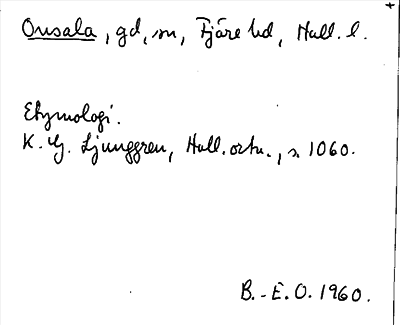 Onsala, gd, sn, Fjäre hd, Hall. l.
Etymologi.
K. G. Ljunggren, Hall. ortn., s. 1060.
B.-E.O. 1960.